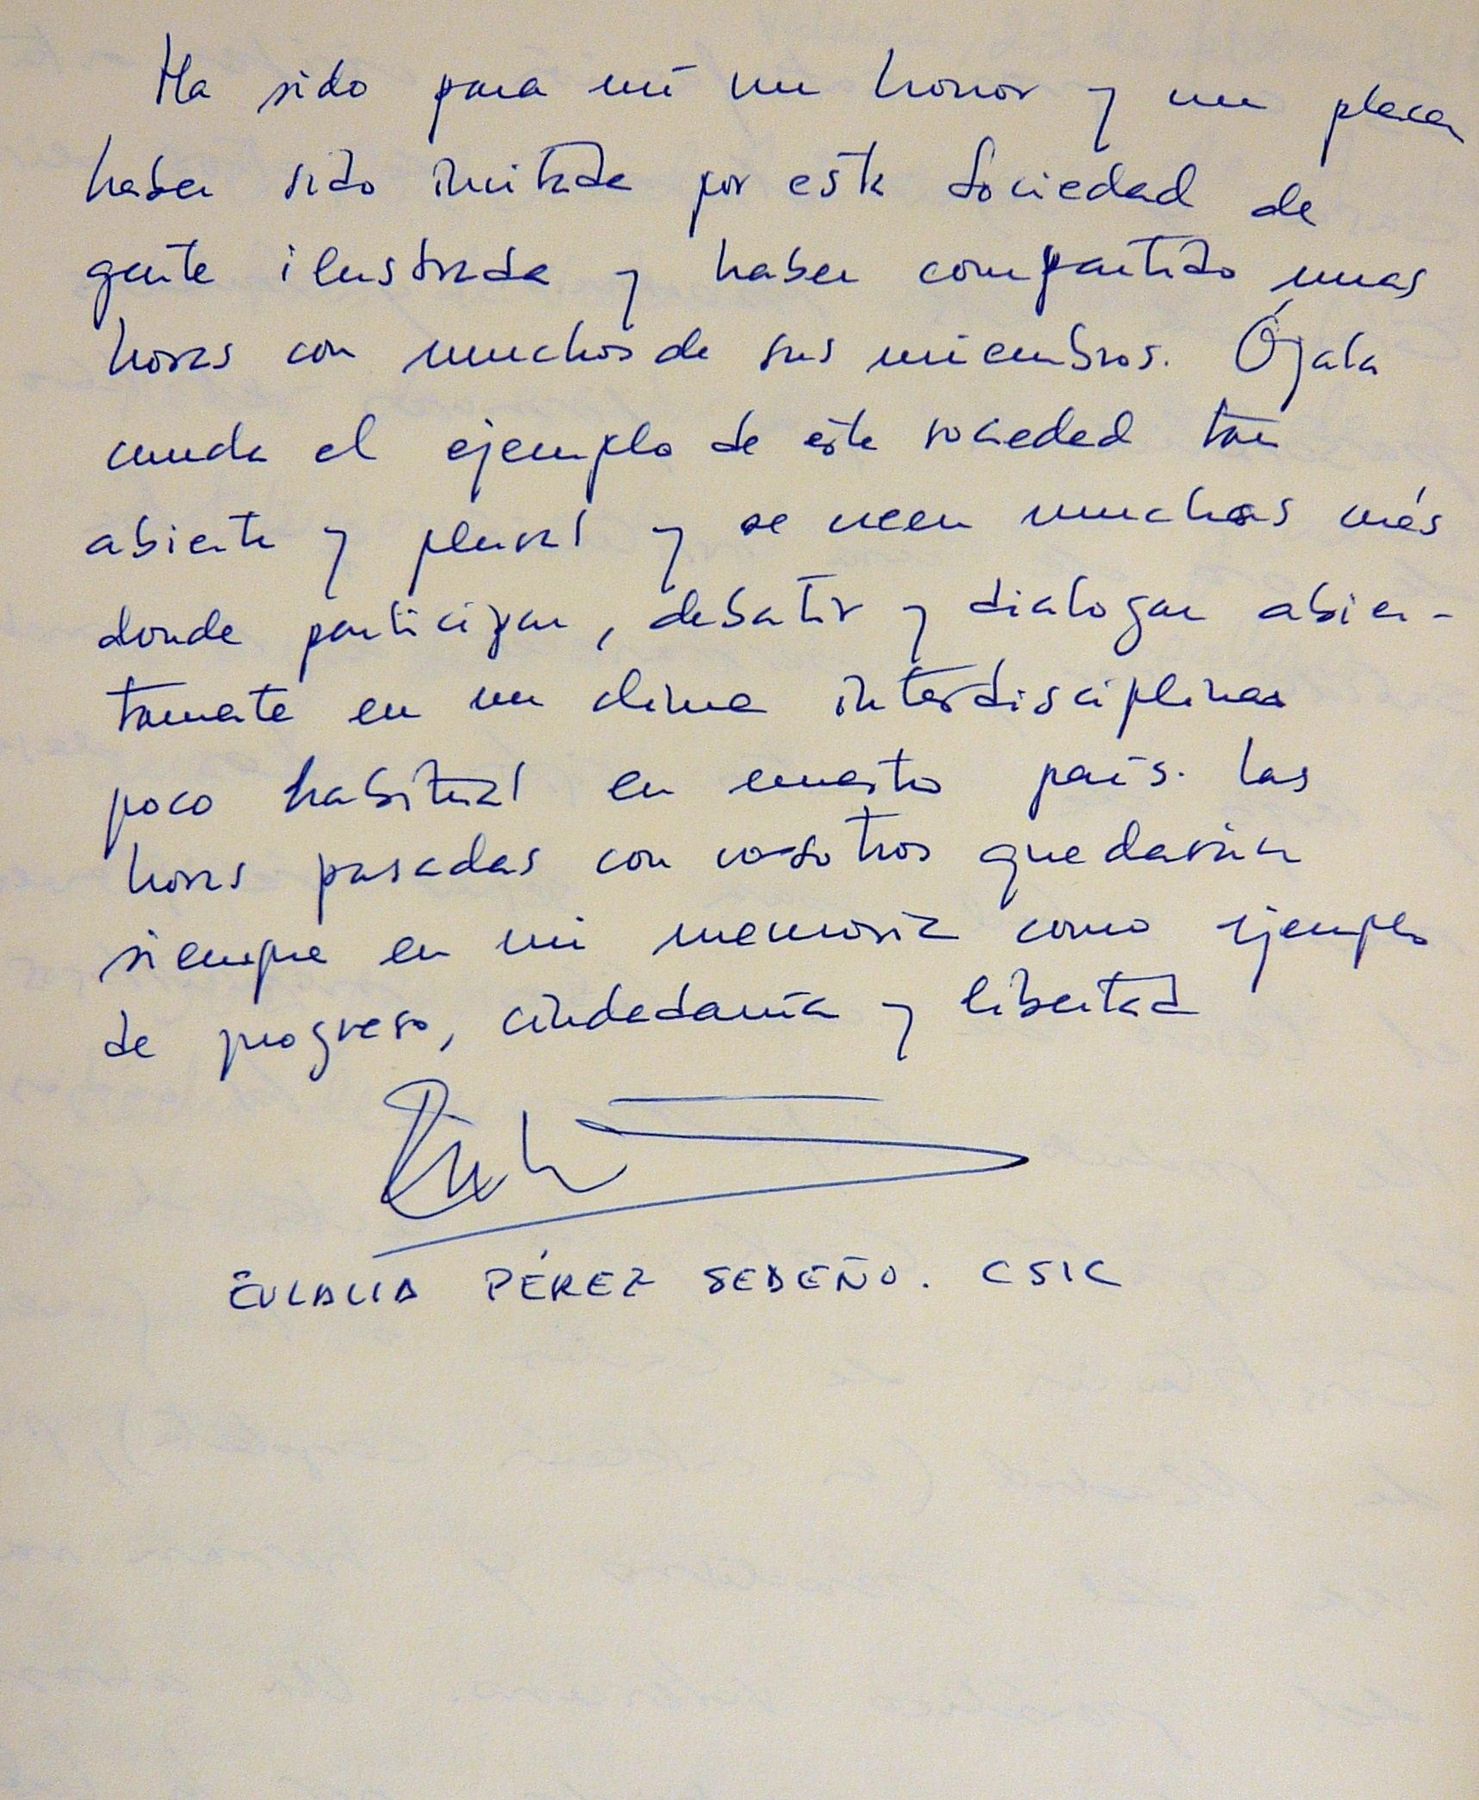 Ha sido para mí un honor y un placer
haber sido invitada por esta Sociedad de
gente ilustrada y haber compartido unas
horas con muchos de sus miembros. Ójala
cunda el ejemplo de esta sociedad tan
abierta y plural y se creen muchas más
donde participar, debatir y dialogar abier-
tamente en un clima interdisciplinar
poco habitual en nuestro país. Las
horas pasadas con vosotros quedarán
siempre en mi memoria como ejemplo
de progreso, ciudadanía y libertad
EULALIA PÉREZ SEDEÑO. CSIC